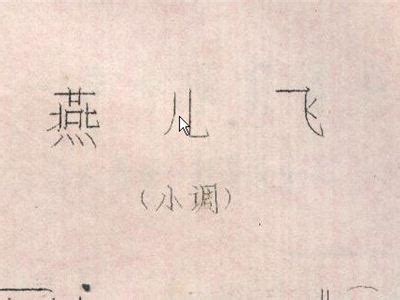 燕儿飞
（小调）